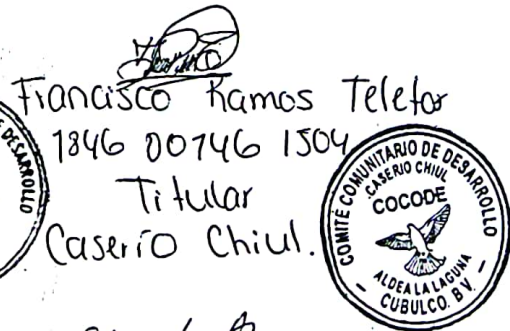 Francisco Ramos
1846 00746 1504
Titular
Caserío Chiul.
COMITÉ COMUNITARIO DE DESARROLLO
CASERIO CHIUL
COCODE
ALDEA LA LAGUNA
CUBULCO. B.V.
DESARROLLO